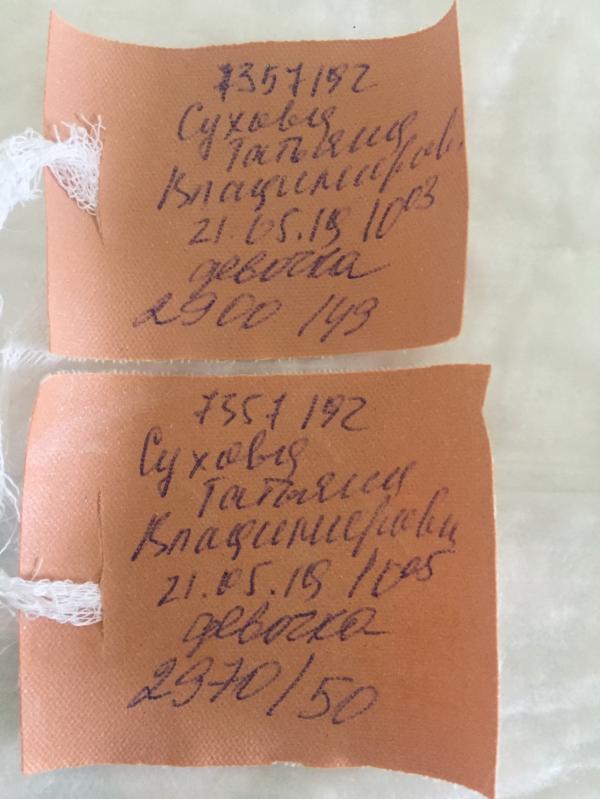 7357/192
Суховья
Татьяна
Владимиров.
21.05.19 10 03
девочка
2900 /49
7357/192
Суховья
Татьяна
Владимировн
21.05.19 /1005
девочка
2970/50